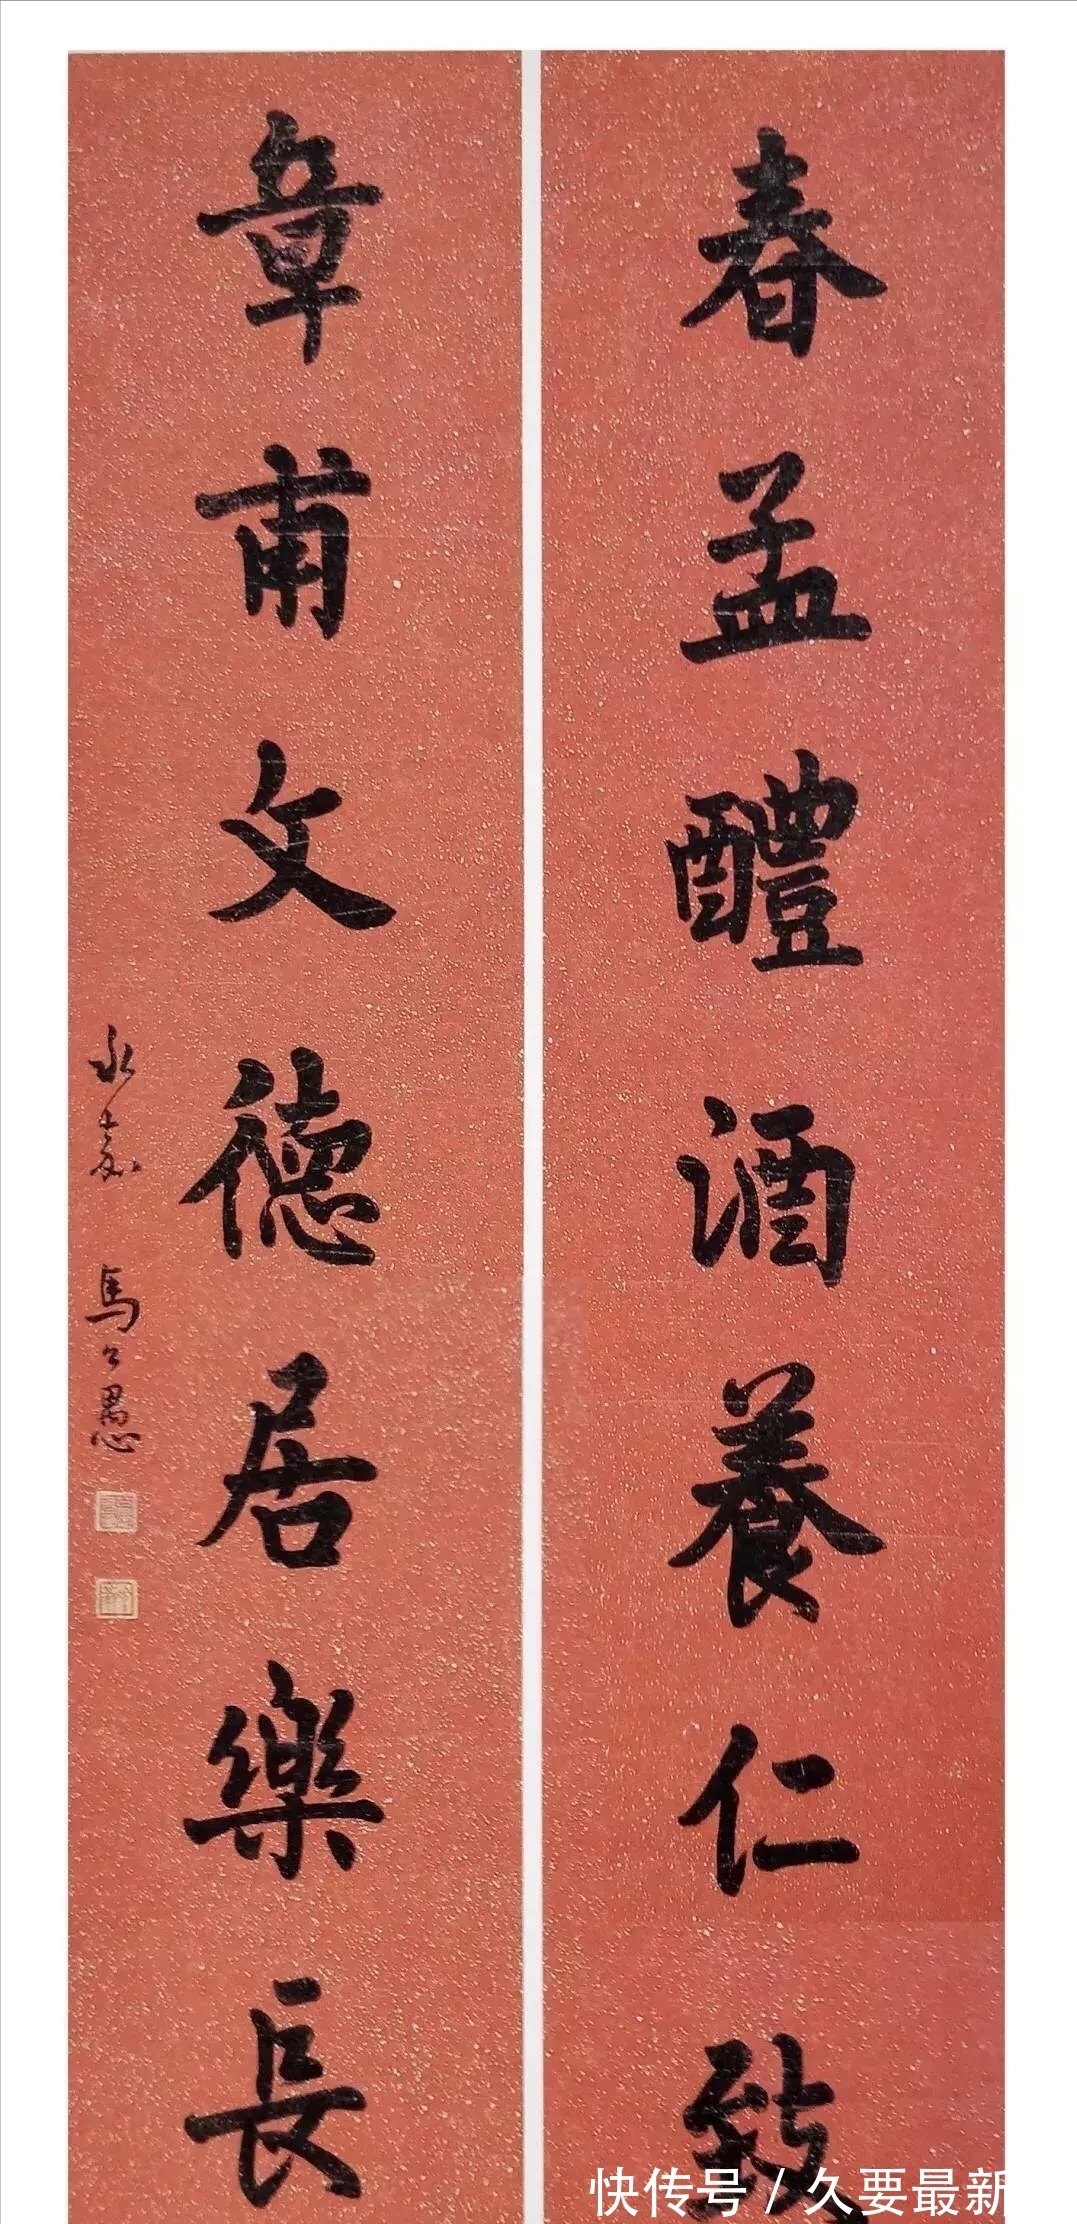 春孟醴酒養仁致
章甫文德居樂長
永嘉馬公愚
快传号/久要最新